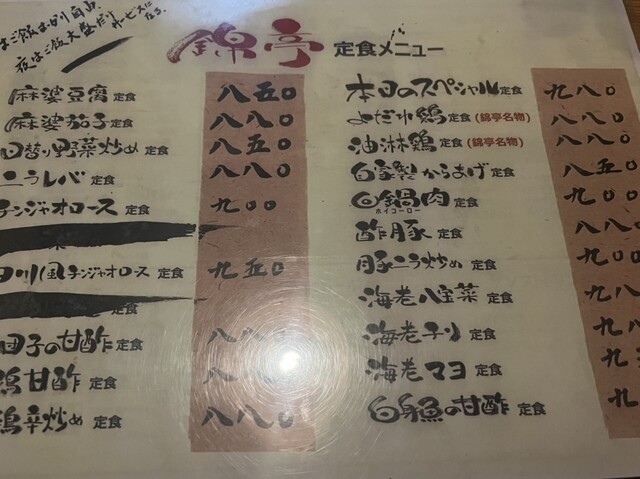 錦亭 定食メニュー
夜はご飯大盛だり
サービスになる
麻婆豆腐定食 八五〇
麻婆茄子定食 八八〇
日替り野菜炒め定食 八五〇
ニラレバ定食 八八〇
チンジャオロース定食 九〇〇
四川風チンジャオロース定食 九五〇
定食
団子の甘酢定食 八八〇
鶏甘酢定食 八八
鶏辛炒め定食 八八〇
本日のスペシャル定食 九八〇
よだれ鶏定食(錦亭名物) 八八〇
油淋鶏定食(錦亭名物) 八八〇
自家製からあげ定食 八五〇
回鍋肉定食 九〇〇
ホイコーロー
酢豚定食 八八〇
豚ニラ炒め定食 九〇〇
海老八宝菜定食 九八
海老チリ定食 九
海老マヨ定食 九
白身魚の甘酢定食 九